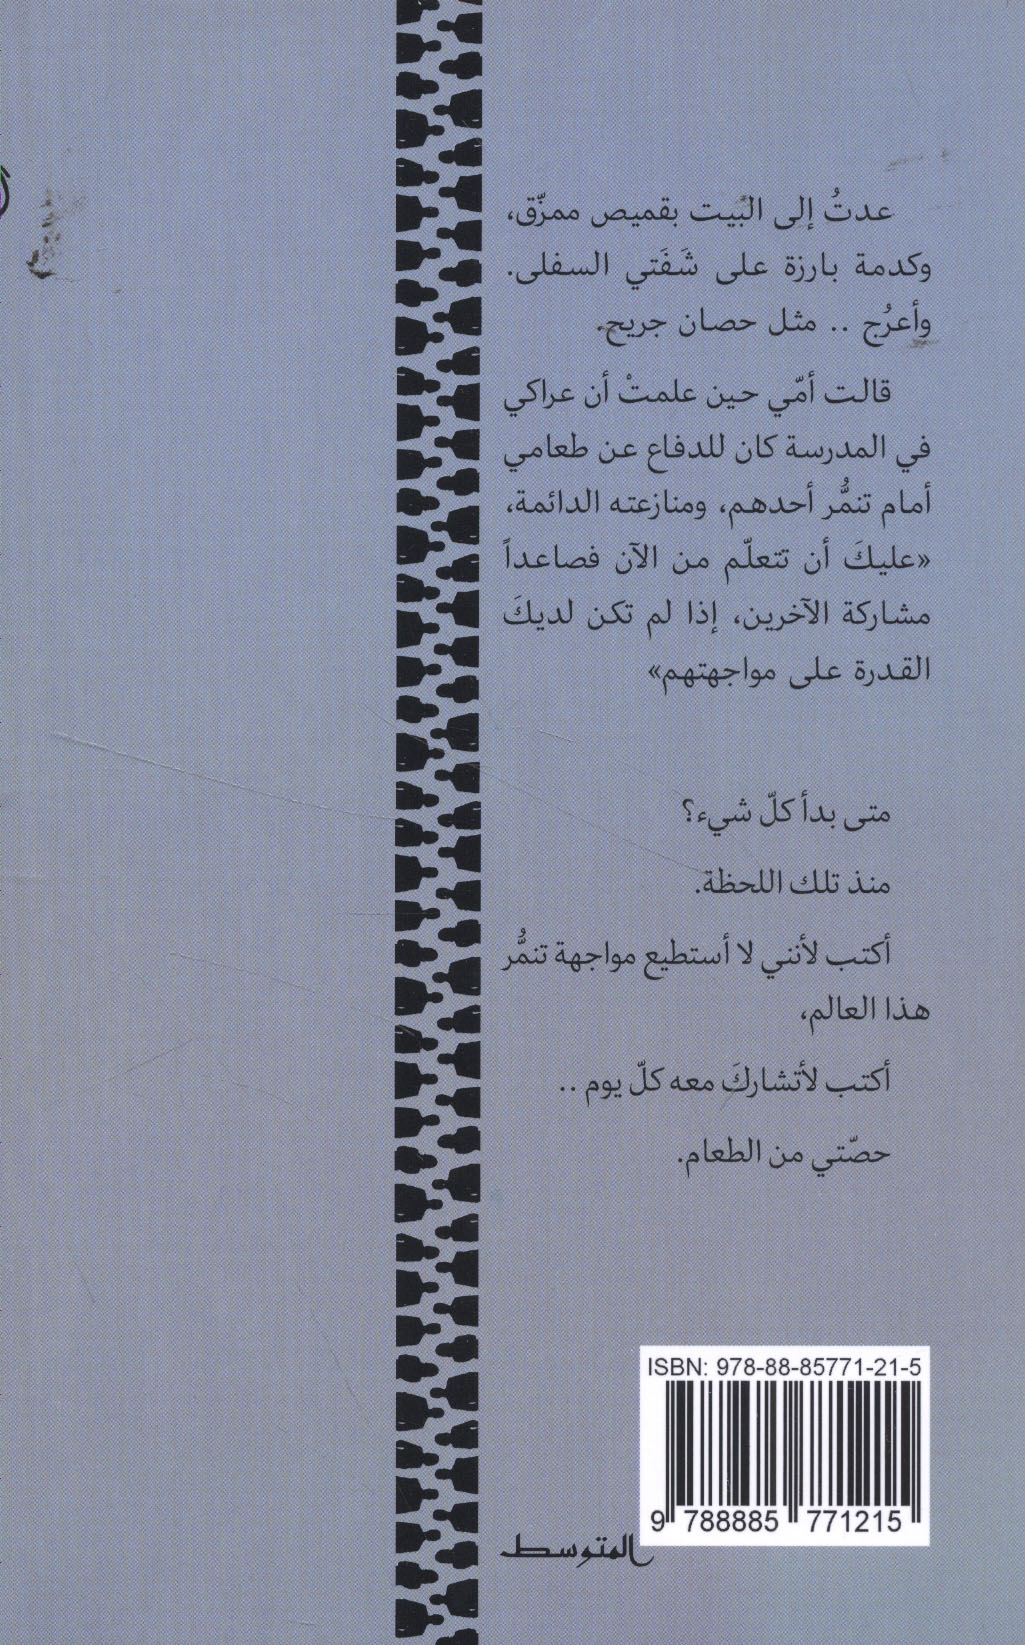 عدتُ إلى البيت بقميص ممزّق،
وكدمة بارزة على شَفَتي السفلى.
وأعرُج .. مثل حصان جريح.
قالت أمّي حين علمتْ أن عراكي
في المدرسة كان للدفاع عن طعامي
أمام تنمُّر أحدهم، ومنازعته الدائمة،
«عليكَ أن تتعلّم من الآن فصاعداً
مشاركة الآخرين، إذا لم تكن لديكَ
القدرة على مواجهتهم»
متى بدأ كلّ شيء؟
منذ تلك اللحظة.
أكتب لأنني لا أستطيع مواجهة تنمُّر
هذا العالم،
أكتب لأتشاركَ معه كلّ يوم ..
حصّتي من الطعام.
ISBN: 978-88-85771-21-5
9 788885 771215
المتوسط